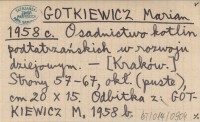 GOTKIEWICZ Marian
1958 c. Osadnictwo kotlin
podtatrzańskich w rozwoju
dziejowym. - [Kraków.]
Strony 57-67, okł. (puste),
cm 20 x 15. Odbitka z: GOT-
KIEWICZ M. 1958 b.